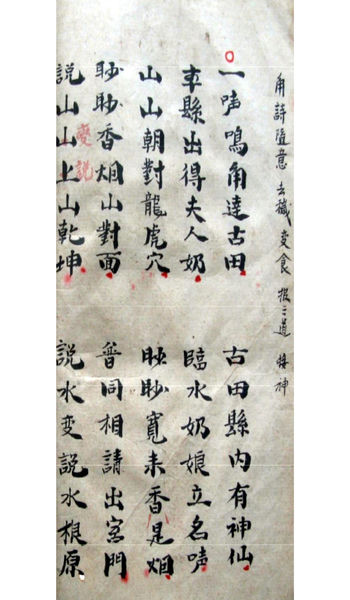 角詩隨意 去穢 变食 三道 接神
一声鳴角達古田 古田縣内有神仙
本縣出得夫人奶 臨水奶娘立名声
山山朝對龍虎穴 眇寬耒香是烟
眇眇香烟山對面 普同相請出宮門
変説
説山山上山乾坤 説水変説水根原